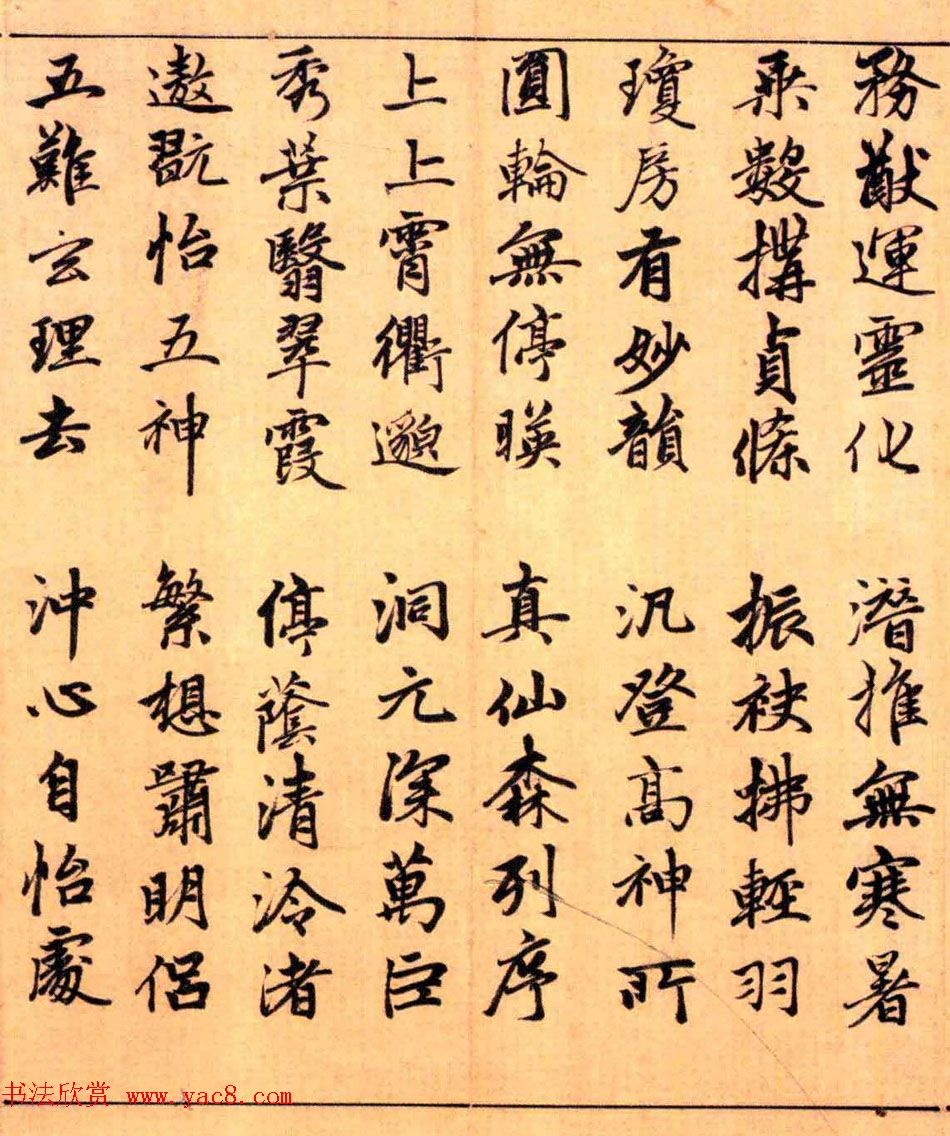 務猷運靈化 潛推無寒暑
乘數構貞條 振袂拂輕羽
瓊房有妙韻 汎登高神所
圓輪無停暎 真仙森列序
上上霄衢邈 洞元深萬巨
秀葉翳翠霞 停蔭清泠渚
遨翫怡五神 繁想嘯明侶
五難玄理去 沖心自怡處
书法欣赏 www.yac8.com